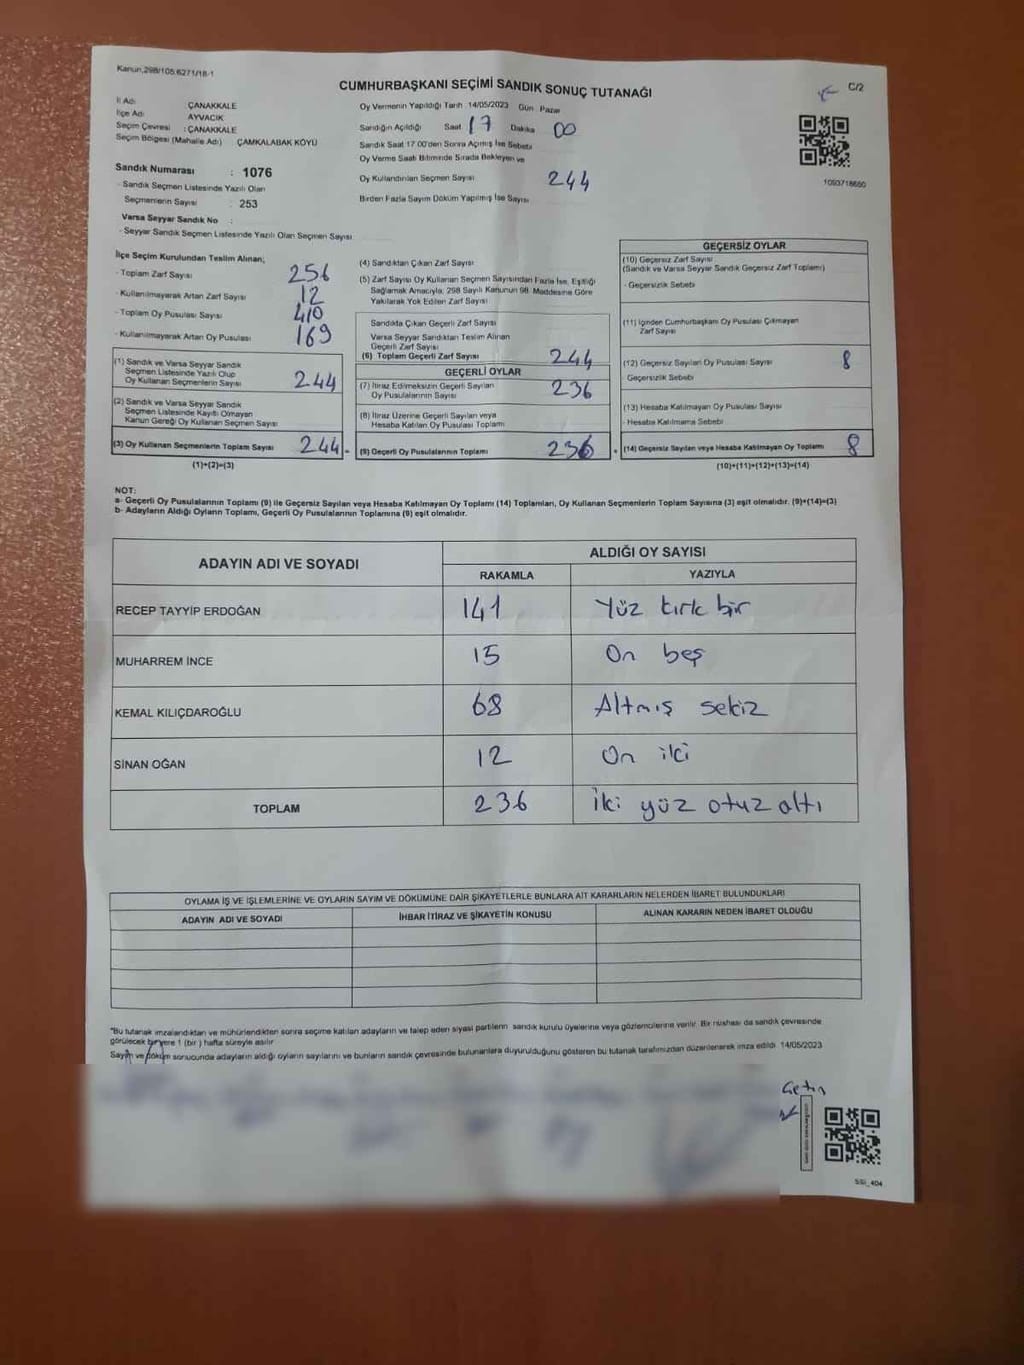 Kanun,298/105;6271/18-1
CUMHURBAŞKANI SEÇİMİ SANDIK SONUÇ TUTANAĞI
C/2
İl Adı : ÇANAKKALE
İlçe Adı : AYVACIK
Seçim Çevresi : ÇANAKKALE
Seçim Bölgesi (Mahalle Adı) : ÇAMKALABAK KÖYÜ
Oy Vermenin Yapıldığı Tarih 14/05/2023 Gün Pazar
Sandığın Açıldığı Saat 17 Dakika 00
Sandık Saat 17:00'den Sonra Açılmış İse Sebebi
Oy Verme Saati Bitiminde Sırada Bekleyen ve
Oy Kullandırılan Seçmen Sayısı 244
Birden Fazla Sayım Döküm Yapılmış İse Sayısı
1093718660
Sandık Numarası : 1076
- Sandık Seçmen Listesinde Yazılı Olan
Seçmenlerin Sayısı : 253
Varsa Seyyar Sandık No :
- Seyyar Sandık Seçmen Listesinde Yazılı Olan Seçmen Sayısı
İlçe Seçim Kurulundan Teslim Alınan;
- Toplam Zarf Sayısı 256
- Kullanılmayarak Artan Zarf Sayısı 12
- Toplam Oy Pusulası Sayısı 410
- Kullanılmayarak Artan Oy Pusulası 169
(1) Sandık ve Varsa Seyyar Sandık
Seçmen Listesinde Yazılı Olup
Oy Kullanan Seçmenlerin Sayısı 244
(2) Sandık ve Varsa Seyyar Sandık
Seçmen Listesinde Kayıtlı Olmayan
Kanun Gereği Oy Kullanan Seçmen Sayısı
(3) Oy Kullanan Seçmenlerin Toplam Sayısı 244
(1)+(2)=(3)
(4) Sandıktan Çıkan Zarf Sayısı
(5) Zarf Sayısı Oy Kullanan Seçmen Sayısından Fazla İse, Eşitliği
Sağlamak Amacıyla, 298 Sayılı Kanunun 98. Maddesine Göre
Yakılarak Yok Edilen Zarf Sayısı
Sandıkta Çıkan Geçerli Zarf Sayısı
Varsa Seyyar Sandıktan Teslim Alınan
Geçerli Zarf Sayısı
(6) Toplam Geçerli Zarf Sayısı 244
GEÇERLİ OYLAR
(7) İtiraz Edilmeksizin Geçerli Sayılan
Oy Pusulalarının Sayısı 236
(8) İtiraz Üzerine Geçerli Sayılan veya
Hesaba Katılan Oy Pusulası Toplamı
(9) Geçerli Oy Pusulalarının Toplamı 236
GEÇERSİZ OYLAR
(10) Geçersiz Zarf Sayısı
(Sandık ve Varsa Seyyar Sandık Geçersiz Zarf Toplamı)
- Geçersizlik Sebebi
(11) İçinden Cumhurbaşkanı Oy Pusulası Çıkmayan
Zarf Sayısı
(12) Geçersiz Sayılan Oy Pusulası Sayısı 8
Geçersizlik Sebebi
(13) Hesaba Katılmayan Oy Pusulası Sayısı
- Hesaba Katılmama Sebebi
(14) Geçersiz Sayılan veya Hesaba Katılmayan Oy Toplamı 8
(10)+(11)+(12)+(13)=(14)
NOT:
a- Geçerli Oy Pusulalarının Toplamı (9) ile Geçersiz Sayılan veya Hesaba Katılmayan Oy Toplamı (14) Toplamları, Oy Kullanan Seçmenlerin Toplam Sayısına (3) eşit olmalıdır. (9)+(14)=(3)
b- Adayların Aldığı Oyların Toplamı, Geçerli Oy Pusulalarının Toplamına (9) eşit olmalıdır.
ADAYIN ADI VE SOYADI
ALDIĞI OY SAYISI
RAKAMLA YAZIYLA
RECEP TAYYİP ERDOĞAN 141 Yüz kırk bir
MUHARREM İNCE 15 On beş
KEMAL KILIÇDAROĞLU 68 Altmış sekiz
SİNAN OĞAN 12 On iki
TOPLAM 236 İki yüz otuz altı
OYLAMA İŞ VE İŞLEMLERİNE VE OYLARIN SAYIM VE DÖKÜMÜNE DAİR ŞİKAYETLERLE BUNLARA AİT KARARLARIN NELERDEN İBARET BULUNDUKLARI
ADAYIN ADI VE SOYADI İHBAR İTİRAZ VE ŞİKAYETİN KONUSU ALINAN KARARIN NEDEN İBARET OLDUĞU
"Bu tutanak imzalandıktan ve mühürlendikten sonra seçime katılan adayların ve talep eden siyasi partilerin sandık kurulu üyelerine veya gözlemcilerine verilir. Bir nüshası da sandık çevresinde
görülecek bir yere 1 (bir) hafta süreyle asılır
Sayım ve döküm sonucunda adayların aldığı oyların sayılarını ve bunların sandık çevresinde bulunanlara duyurulduğunu gösteren bu tutanak tarafımızdan düzenlenerek imza edildi. 14/05/2023
Çetin